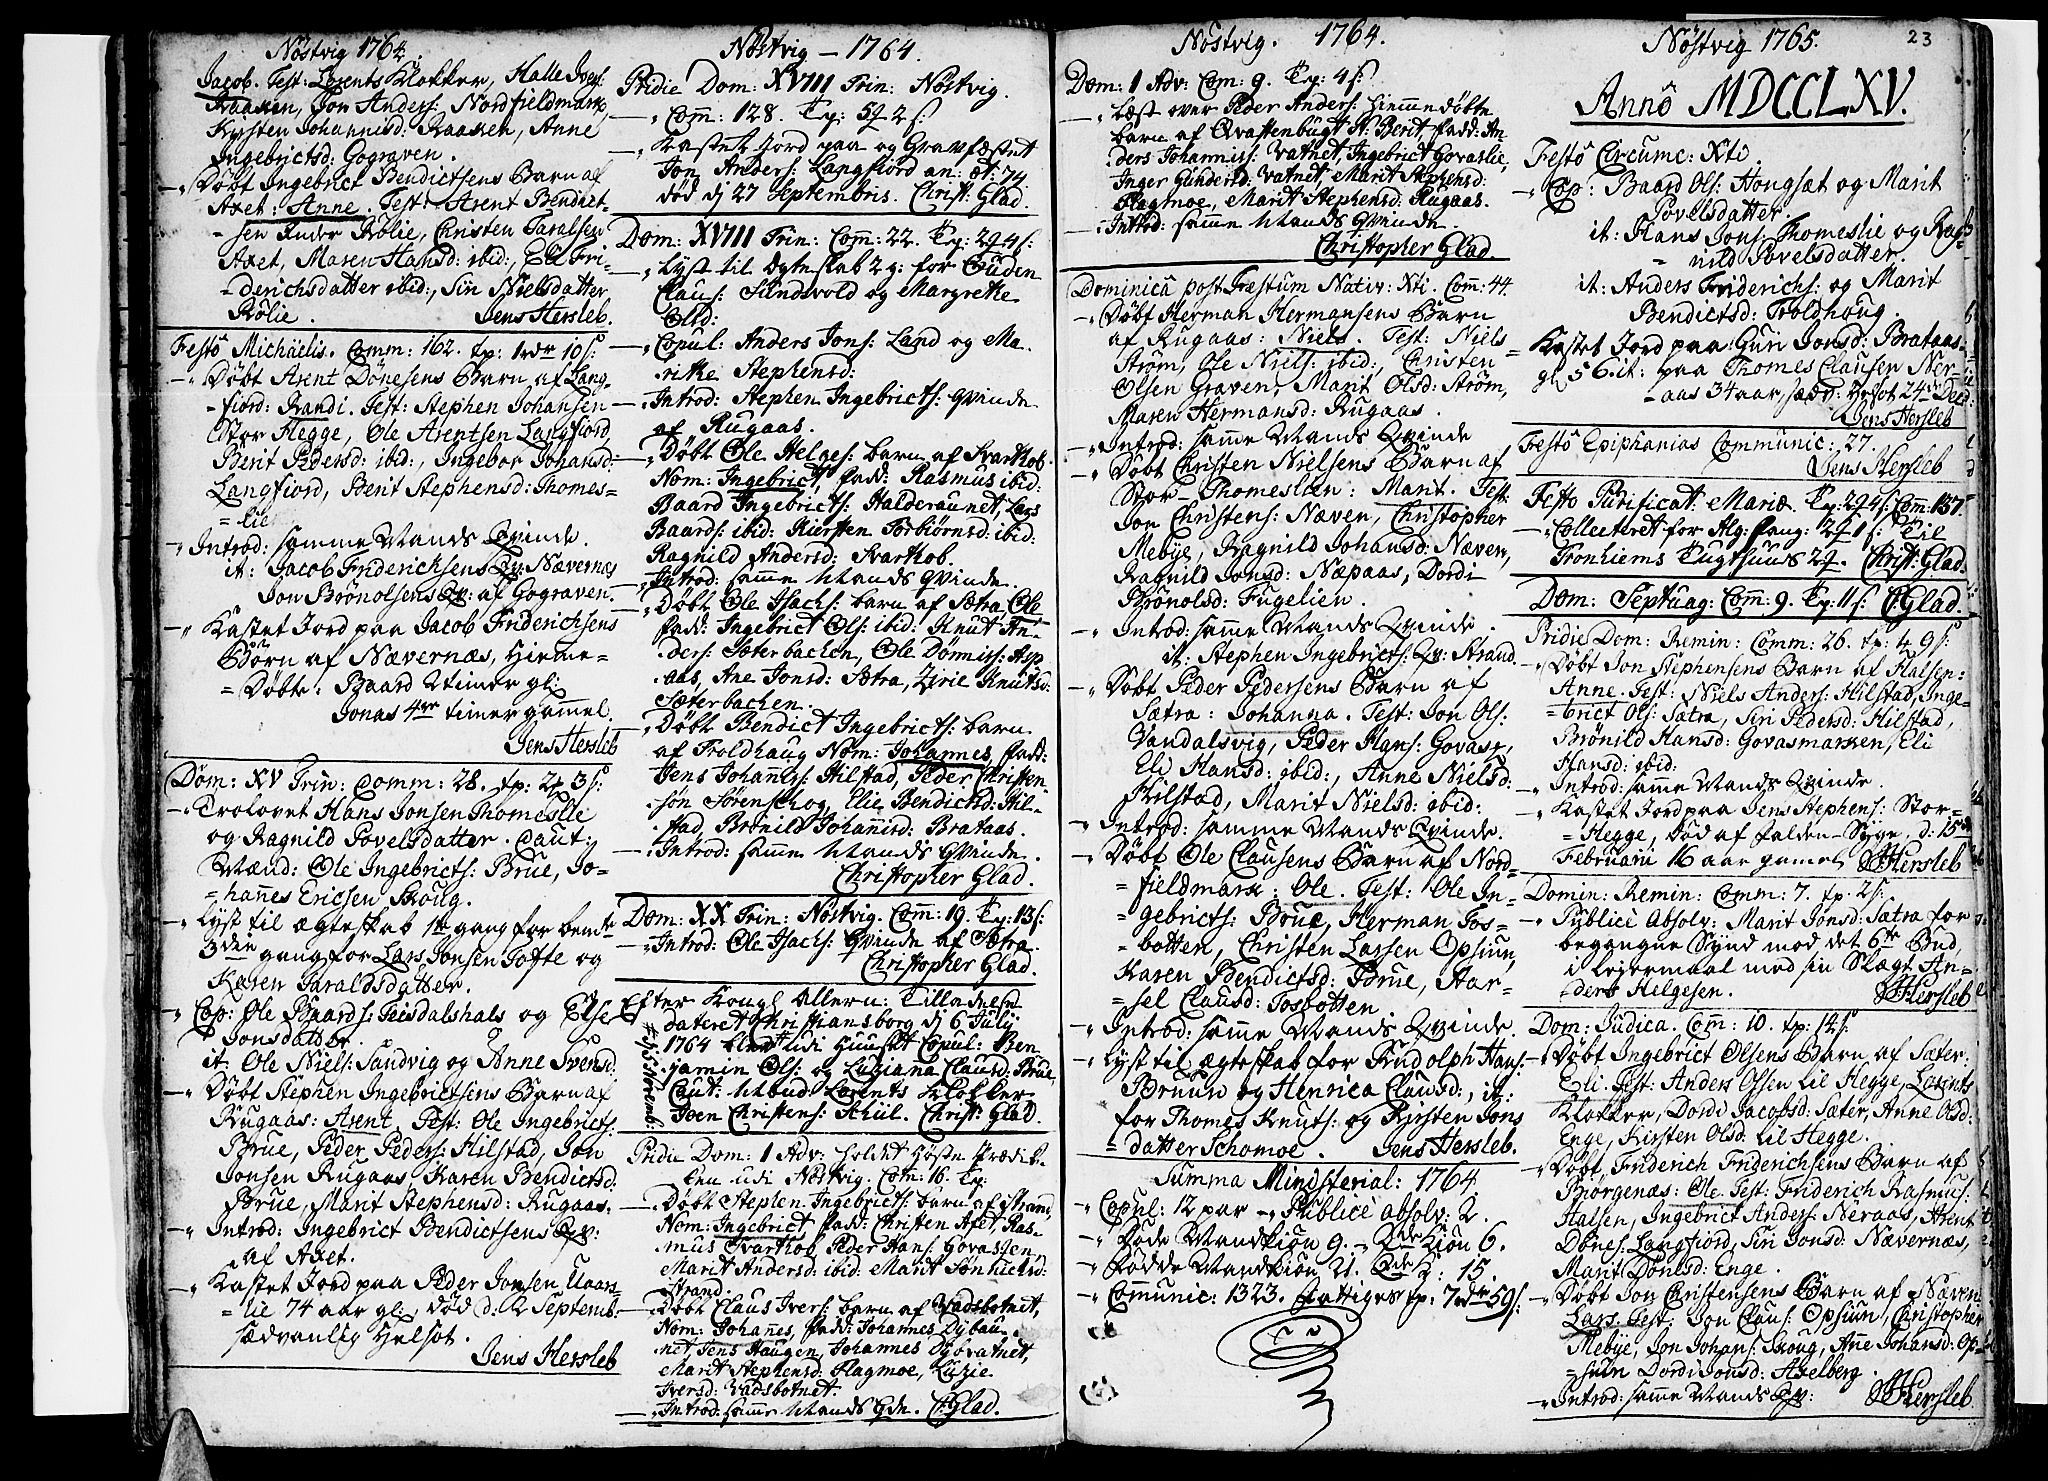 Nöstvig 1764.
Jacob. Test: Lorents Klokker, Halle Ivers:
Kraaken, Jon Anders: Nordfieldmark,
Kirsten Johannisd: Kraaken, Anne
Ingebrictsd: Gograven.
-,, Döbt Ingebrict Bendictsens Barn af
Axet: Anne. Test: Arent Bendict-
-sen Rölie, Christen Taralsen
Axet, Maren Hansd: ibid:, Eli Fri-
-derichsdatter ibid:, Siri Nielsdatter
Rölie. Jens Hersleb.
Festô Michäelis. Comm: 162. tp: 1 rdr 10 s:
-,, Döbt Arent Dönesens Barn af Lang-
-fiord: Randi. Test: Stephen Johansen
Stor Hegge, Ole Arentsen Langfiord,
Berit Pedersd: ibid:, Ingebor Johansd:
Langfiord, Berit Stephensd: Thomes-
-lie
-,, Introd: samme Mands Qvinde.
it: Jacob Friderichsens Qv: Nævernæs
Jon Brönolsens Qv: af Gograven.
-,, Kastet Jord paa Jacob Friderichsens
Börn af Nævernæs, hieme-
-Döbte: Baard timer gl:
Jonas 4re timer gammel.
Jens Hersleb
Dom: XV Trin: Comm: 28. tp: 2 3 s:
-,, Trolovet Hans Jonsen Thomeslie
og Ragnild Povelsdatter. Caut:
Mænd: Ole Ingebricts: Brue, Jo-
-hannes Ericsen Skoug.
-,, Lyst til ægteskab 1te gang for bemte
3die gang for Lars Jonsen Tofte og
Karen Taraldsdatter.
-,, Cop: Ole Baards: Teisdalshals og Else
Jonsdatter.
it: Ole Niels: Sandvig og Anne Svensd:
-,, Döbt Stephen Ingebrictsens Barn af
Rugaas: Arent. Test: Ole Ingebricts:
Brue, Peder Peders: Hilstad, Jon
Jonsen Rugaas, Karen Bendictsd:
Brue, Marit Stephensd: Rugaas.
-,, Introd: Ingebrict Bendictsens Qv:
af Axet.
-,, Kastet Jord paa Peder Jonsen Uaars-
-lie 74 aar gl:, död d: 2 Septemb:
sædvanlig Helsot.
Jens Hersleb
Nöstvig - 1764.
Pridie Dom: XVIII Trin: Nöstvig.
-,, Comm: 128. Tp: 5 2 s
-,, Kastet Jord paa og Gravfæstet
Jon Anders: Langfiord an: æt: 74
död dj 27 Septembris. Christ: Glad.
Dom: XVIII Trin: Comm: 22. Tp: 2 4 s:
-,, Lyst til Ægteskab 2 g: for Guden
Claus: Sundvold og Margrethe
Olsd:
-,, Copul: Anders Jons: Land og Ma-
-rithe Stephensd:
-,, Introd: Stephen Ingebricts: Qvinde
af Rugaas.
-,, Döbt Ole Helges: barn af Svarthob.
Nom: Ingebrict, fadd: Rasmus ibid:
Baard Ingebricts: Halderaunet, Lars
Baards: ibid: Kirsten Torbiörnsd: ibid:
Ragnild Andersd: Svarthob.
-,, Introd: samme Mands Qvinde.
-,, Döbt Ole Isachs: barn af Sætra, Ole
fadd: Ingebrict Ols: ibid: Knut An-
ders: Sæterbachen, Ole Dönniss: Asp
aas, Ane Jonsd: Sætra, Zirie Knutsd:
Sæterbachen.
-,, Döbt Bendict Ingebricts: barn
af Troldhaug Nom: Johannes, fadd:
Jens Johannis: Hilstad, Peder Christen
sön Sörenschog, Elie Bendictsd: Hil-
stad, Brönild Johannisd: Brataas.
-,, Introd: samme Mands Qvinde.
Christopher Glad.
Dom: XX Trin: Nöstvig. Comm: 19. Tp: 13 s:
-,, Introd: Ole Isachs: Qvinde af Sætra.
Christopher Glad.
Efter Kongl Allern: Tilladelse
dateret Christiansborg dj 6 Julij
1764 blev udi Huuset Copul: Ben
jamin Ols: og Luziana Clausd: Brue,
Caut: Mænd Lorents Klokker
Joen Christens: Schiil. Christ: Glad.
d: 5 Novemb:
Pridie Dom: 1 Adv: holdet Höste Prædik-
ken udi Nöstvig. Com: 16. Tp:
-,, Döbt Stephen Ingebricts: barn af Strand,
Nom: Ingebrict, fadd: Christen Axet, Ras-
mus Svarthob, Peder Hans: Govasslien,
Marit Andersd: ibid: Marit
Strand.
-,, Döbt Claus Ivers: barn af Vadsbotnet,
Nom: Johanes, fadd: Johannes Dybau-
net, Jens Haugen, Johannes Dybvatnet,
Marit Stephensd: Flagmoe, Luzie
Iversd: Vadsbotnet.
-,, Introd: samme Mands Qdn. C: Glad.
Nöstvig. 1764.
Dom: 1 Adv: Com: 9. Tp: 4 s:
-,, Læst over Peder Anders: hiemmedöbte
barn af Qvastenbugt N: Berit, fadd: An-
ders Johanniss: Vatnet, Ingebrict Govaslie,
Inger Gundersd: Vatnet, Marit Stephensd:
Flagmoe, Marit Stephensd: Rugaas.
-,, Introd: samme Mands Qvinde.
Christopher Glad.
Dominicâ post Festum Nativ: Xti. Com: 44.
-,, Döbt Herman Hermansens Barn
af Rugaas: Niels. Test: Niels
Ström, Ole Niels: ibid:, Christen
Olsen Graven, Marit Olsd: Ström,
Maren Hermansd: Rugaas.
-,, Introd: samme Mands Qvinde
-,, Döbt Christen Nielsens Barn af
Stor-Thomeslien: Marit. Test:
Jon Christens: Næven, Christopher
Mebye, Ragnild Johansd: Næven,
Ragnild Jonsd: Næpaas, Dordi
Brönolsd: Fugelien.
-,, Introd: samme Mands Qvinde.
it: Stephen Ingebricts: Qv: Strand.
-,, Döbt Peder Pedersens Barn af
Sætra: Johanna. Test: Jon Ols:
Vandalsvig, Peder Hans: Govasl:,
Eli Hansd: ibid:, Anne Nielsd:
Hilstad, Marit Nielsd: ibid:
-,, Introd: samme Mands Qvinde.
-,, Döbt Ole Clausens Barn af Nord-
-fieldmark: Ole. Test: Ole In-
-gebricts: Brue, Herman Fos-
-botten, Christen Larsen Opsium,
Karen Bendictsd: Brue, Aar-
-sel Clausd: Fosbotten.
-,, Introd: samme Mands Qvinde.
-,, Lyst til ægteskab for Rudolph Hans:
Bruun og Henrica Clausd:, it:
for Thomes Knuts: og Kirsten Jons
-datter Schomoe. Jens Hersleb.
Summa Ministerial: 1764
-,, Copul: 12 par -,, Publicè absolv: 2.
-,, Döde Mandkiön 9. - Qdekiön 6.
-,, Födde Mandkiön 21. Qdek: 15.
-,, Communic: 1323. fattiges tp: 7 rdr 59 s:
Nöstvig 1765.
23
Annô MDCCLXV.
Festô Circumc: Xti.
-,, Cop: Baard Ols: Hongsæt og Marit
Povelsdatter.
it: Hans Jons: Thomeslie og Rag-
nild Povelsdatter.
it: Anders Friderichs: og Marit
Bendictsd: Troldhoug.
-,, Kastet Jord paa Guri Jonsd: Brataas
gl: 56. it: paa Thomes Clausen Ner-
-aas 34 aar, sædv: Helsot 24de Decd:
Jens Hersleb
Festô Epiphanias Communic: 27.
Jens Hersleb
Festo Purificat: Mariæ. Tp: 2 4 s: Com: 137.
-,, Collecteret for Alg: fang: 2 1 s: til
Tronhiems Tugthuus 2. Christ: Glad.
Dom: Septuag: Com: 9. Tp: 11 s: C: Glad.
Pridie Dom: Remin: Comm: 26. tp: 9 s:
-,, Döbt Jon Stephensens Barn af Halsen:
Anne. Test: Niels Anders: Hilstad, Inge-
-brict Ols: Sætra, Siri Pedersd: Hilstad,
Brönild Hansd: Govasmarken, Eli
Hansd: ibid:
-,, Introd: samme Mands Qvinde.
-,, Kastet Jord paa Jens Stephens: Stor-
-Hegge, död af falden-Syge, d: 15de
Februarii 16 aar gamel. JHersleb
Domin: Remin: Comm: 7. tp: 2 s:
-,, Publicè Absolv: Marit Jonsd: Sætra for
begangne Synd mod det 6te Bud,
i Leiermaal med sin Slægt An-
ders Helgesen. JHersleb
Dom: Judica. Com: 10. tp: 12 s:
-,, Döbt Ingebrict Olsens Barn af Sæter:
Eli. Test: Anders Olsen lil Hegge, Lorents
Klokker, Dordi Jacobsd: Sæter, Anne Olsd:
Enge, Kirsten Olsd: lil Hegge.
-,, Döbt Friderich Friderichsens Barn af
Biörgenæs: Ole. Test: Friderich Rasmus:
Halsen, Ingebrict Anders: Neraas, Arent
Dönes: Langfiord, Siri Jonsd: Nævernæs,
Marit Dönesd: Enge.
-,, Döbt Jon Christensens Barn af Næven
Lars. Test: Jon Claus: Opsium, Christopher
Mebye, Jon Johans: Skoug, Ane Johansd: Op-
-sium Dordi Jonsd: Axelberg.
-,, Introd: samme Mands Qv: JHersleb